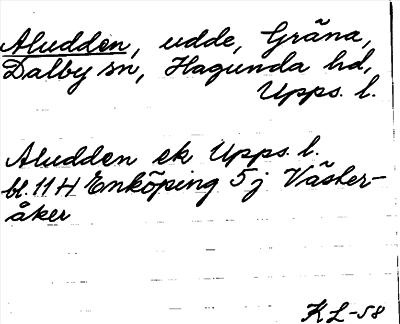 Aludden, udde, Gräna,
Dalby sn, Hagunda hd,
Upps. l.
Aludden ek Upps. l.
bl. 11 H Enköping 5 j Väster-
åker
KL-58